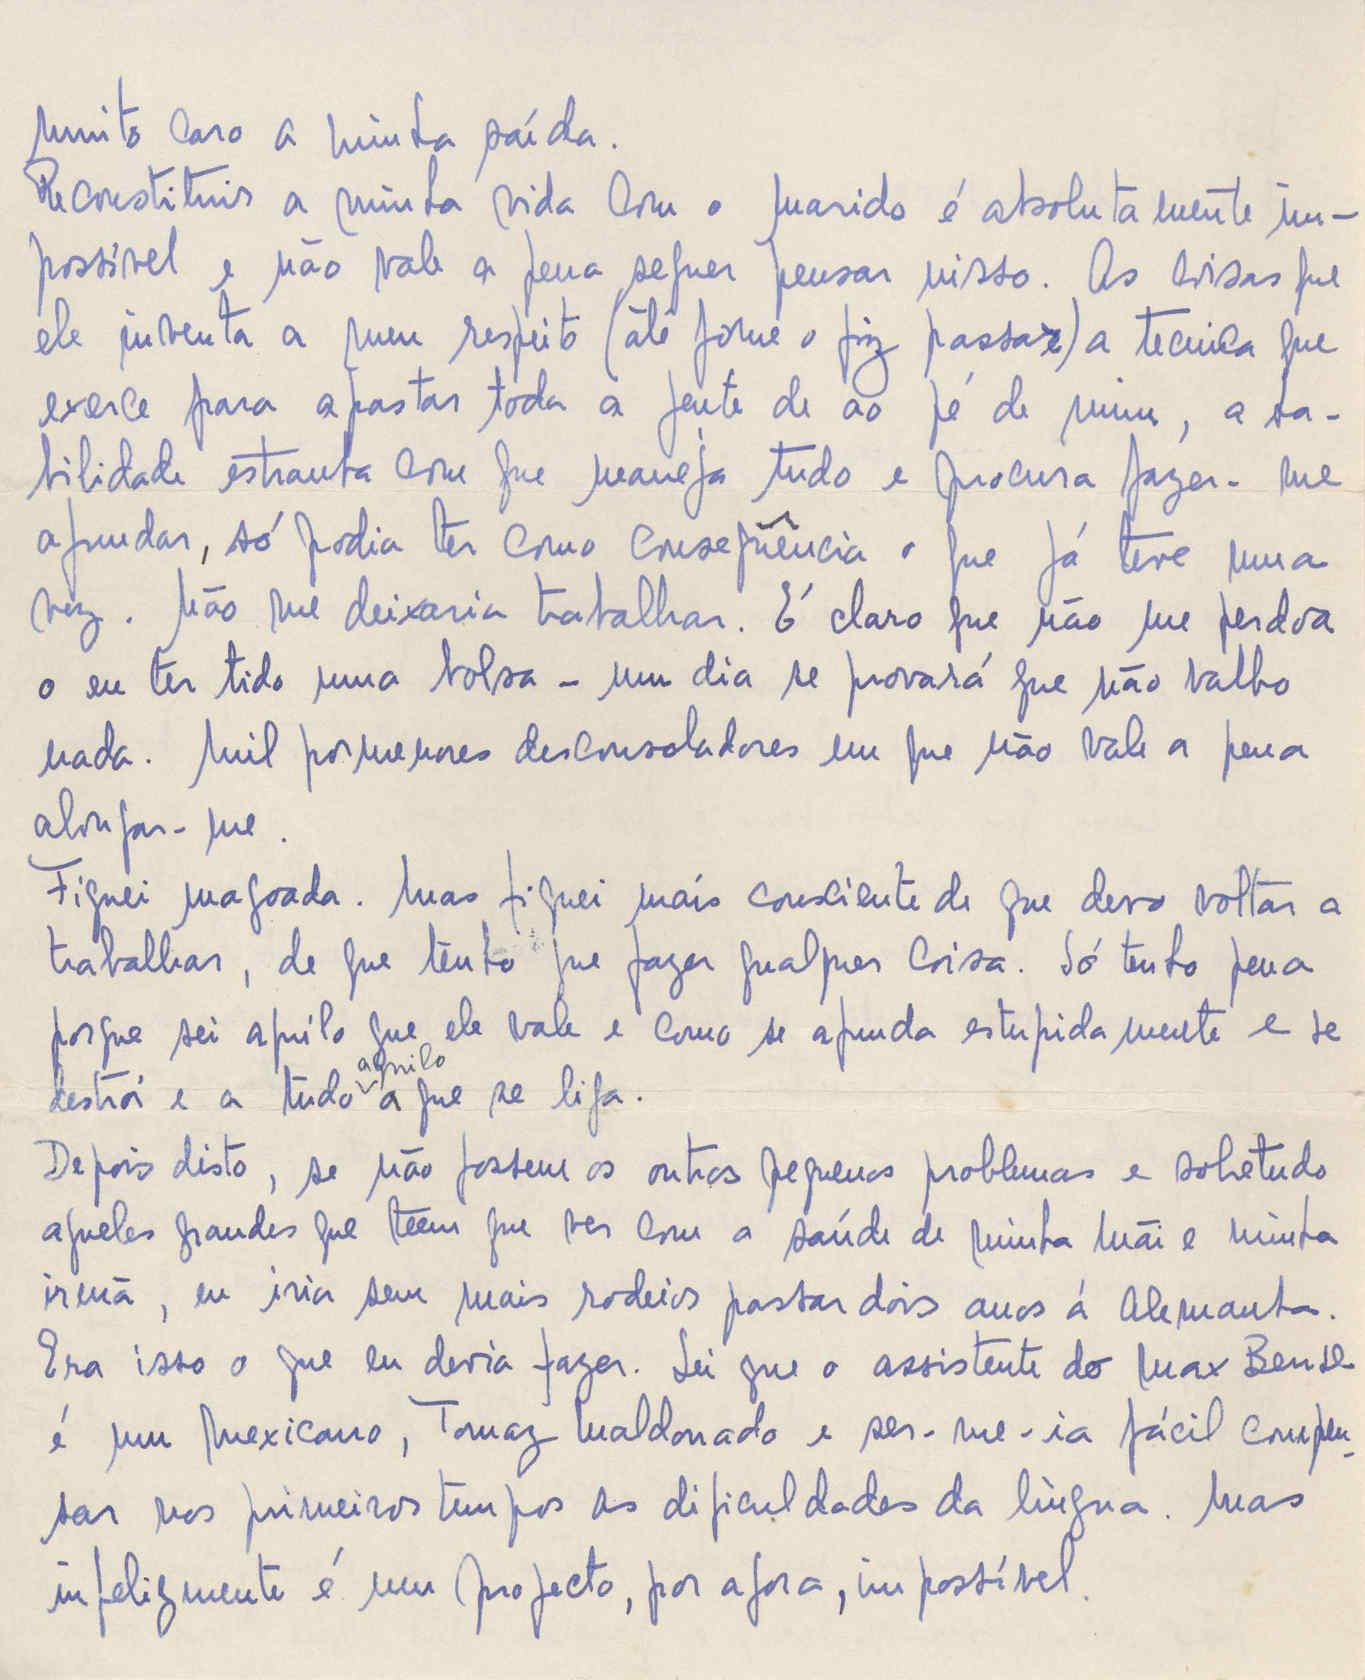 muito caro a minha saída.
Reconstituir a minha vida com o marido é absolutamente im-
possível e não vale a pena sequer pensar nisso. As coisas que
ele inventa a meu respeito (até fome o fiz passar) a tecnica que
exerce para afastar toda a gente de ao pé de mim, a ha-
bilidade estranha com que maneja tudo e procura fazer-me
afundar, só podia ter como conseqüência o que já teve uma
vez. Não me deixaria trabalhar. É claro que não me perdoa
o eu ter tido uma bolsa - um dia se provará que não valho
nada. Mil pormenores desconsoladores em que não vale a pena
alongar-me.
Fiquei magoada. Mas fiquei mais consciente de que devo voltar a
trabalhar, de que tenho que fazer qualquer coisa. Só tenho pena
porque sei aquilo que ele vale e como se afunda estupidamente e se
destrói e a tudo aquilo a que se liga.
Depois disto, se não fossem os outros pequenos problemas e sobretudo
aqueles grandes que teem que ver com a saúde de minha Mãi e minha
irmã, eu iria sem mais rodeios passar dois anos á Alemanha.
Era isso o que eu devia fazer. Sei que o assistente do Max Bense
é um mexicano, Tomaz Maldonado e ser-me-ia fácil compen-
sar nos primeiros tempos as dificuldades da língua. Mas
infelizmente é um projecto, por agora, impossível.